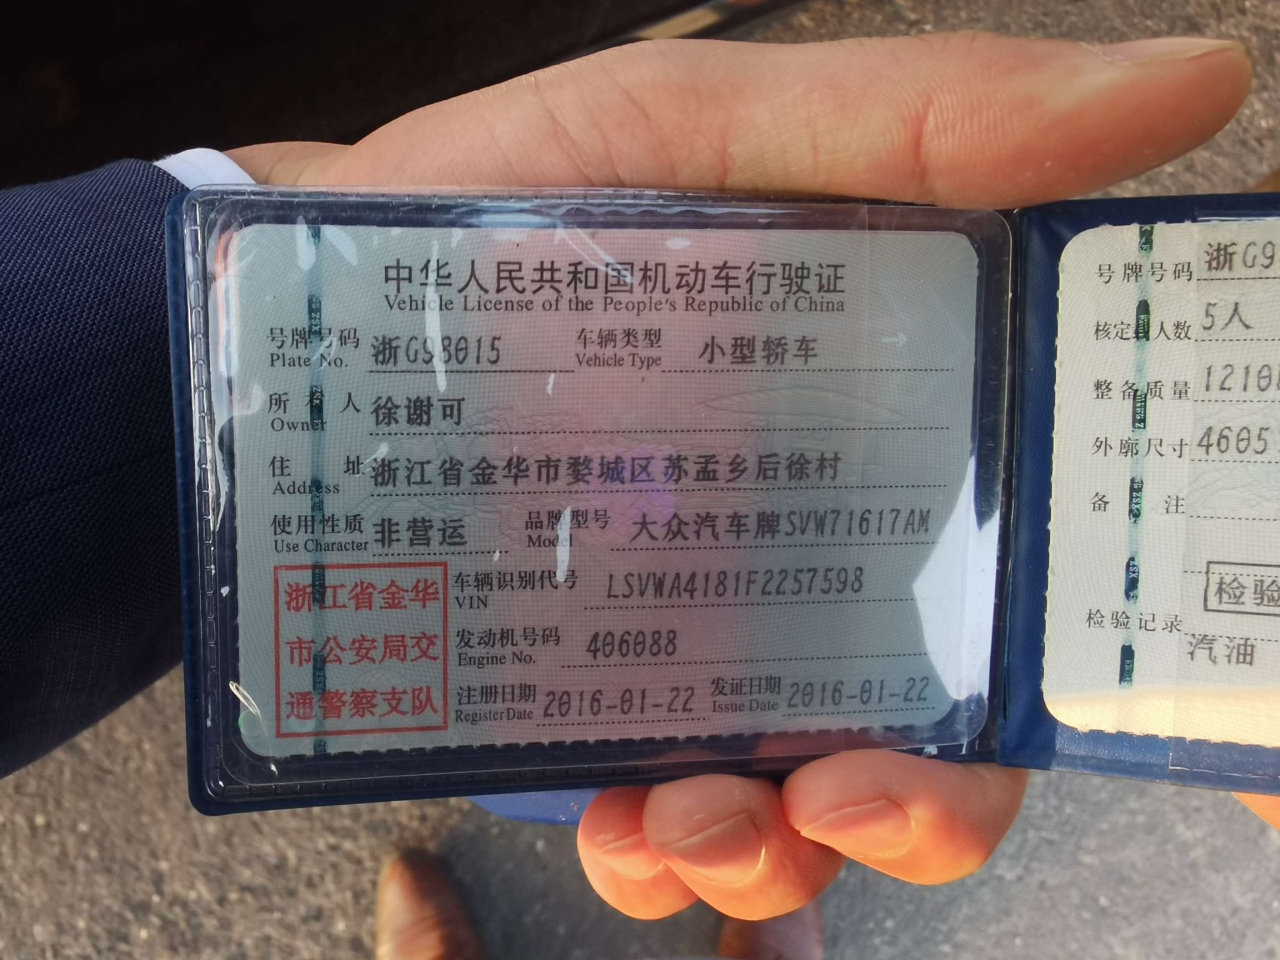 中华人民共和国机动车行驶证
Vehicle License of the People's Republic of China
号牌号码 浙G98015 车辆类型 小型轿车
Plate No. Vehicle Type
所 人 徐谢可
Owner
住 址 浙江省金华市婺城区苏孟乡后徐村
Address
使用性质 非营运 品牌型号 大众汽车牌SVW71617AM
Use Character Model
车辆识别代号 LSVWA4181F2257598
VIN
发动机号码 406088
Engine No.
注册日期 2016-01-22 发证日期 2016-01-22
Register Date Issue Date
浙江省金华
市公安局交
通警察支队
号牌号码 浙G9
核定 人数 5人
整备质量 1210
外廓尺寸 4605
备 注
检验
检验记录
汽油